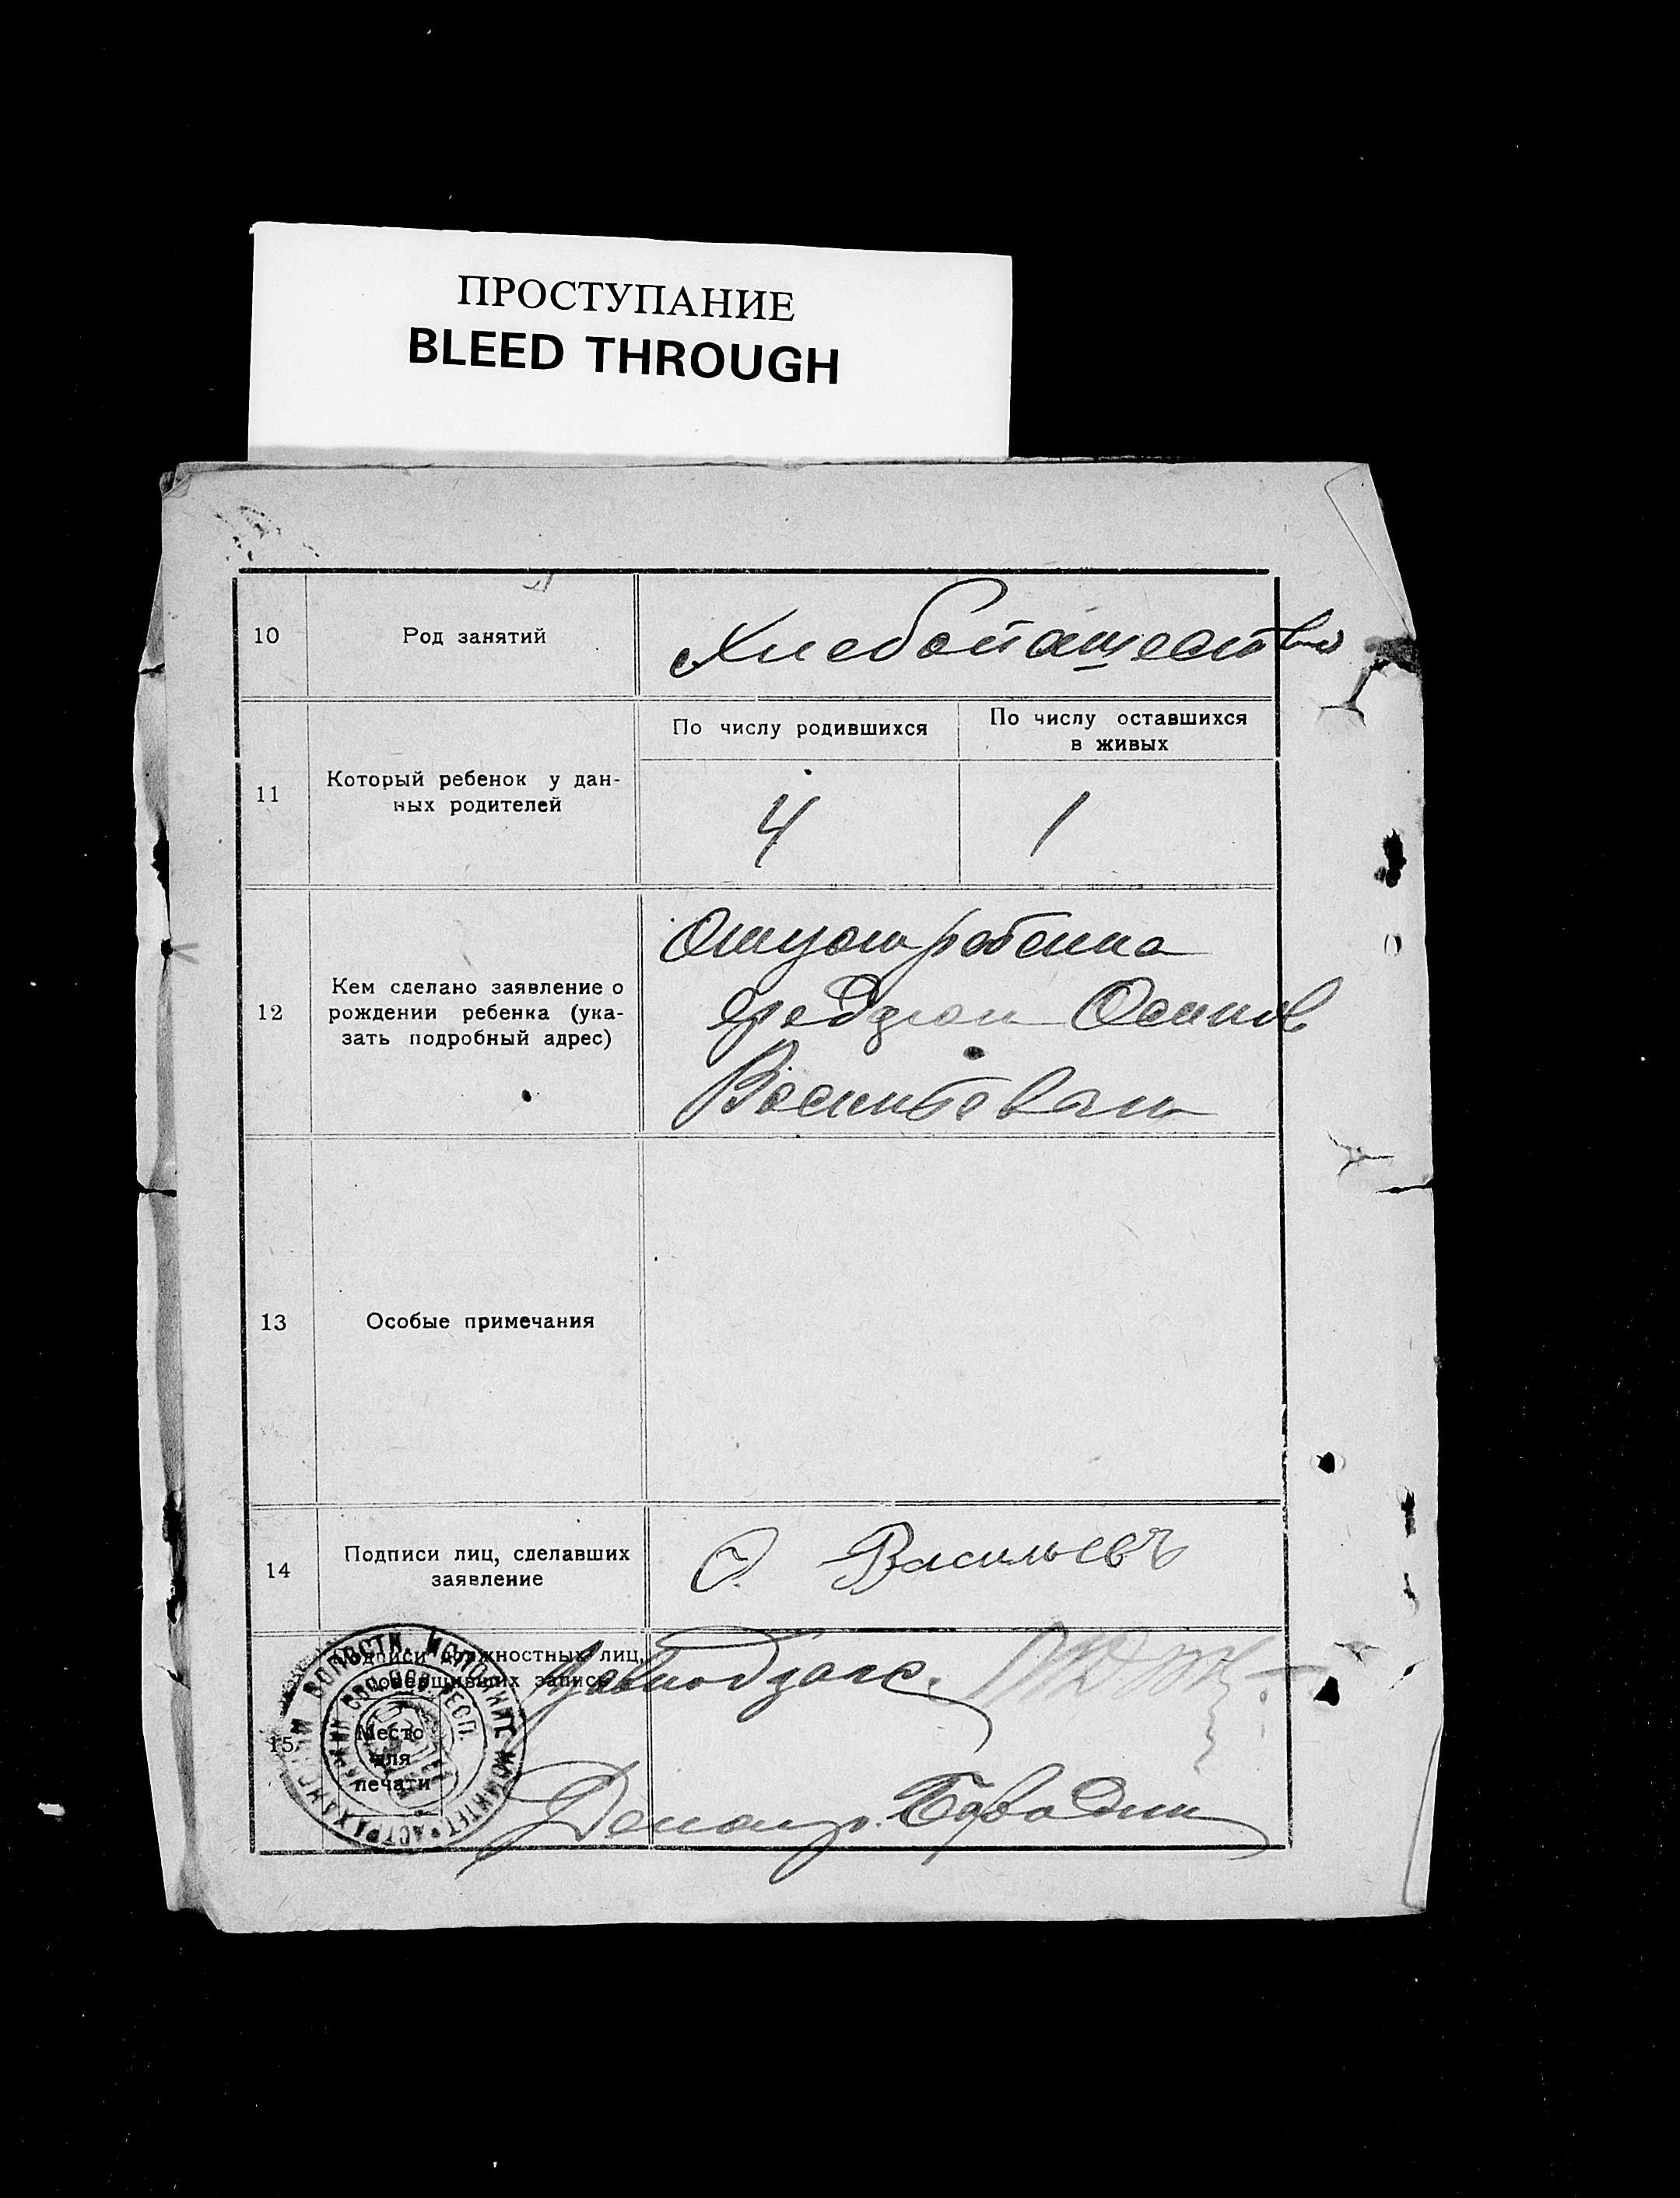 ПРОСТУПАНИЕ
BLEED THROUGH
10
Род занятий
Хлебопашество
11
Который ребенок у дан-
ных родителей
По числу родившихся
По числу оставшихся
в живых
4
1
12
Кем сделано заявление о
рождении ребенка (ука-
зать подробный адрес)
Отцом ребенка
Осипов
Васильевым
13
Особые примечания
14
Подписи лиц, сделавших
заявление
О. Васильевъ
15
Подписи должностных лиц,
совершивших запись
Место
для
печати
Завподзагс.
Делопр. Бородин